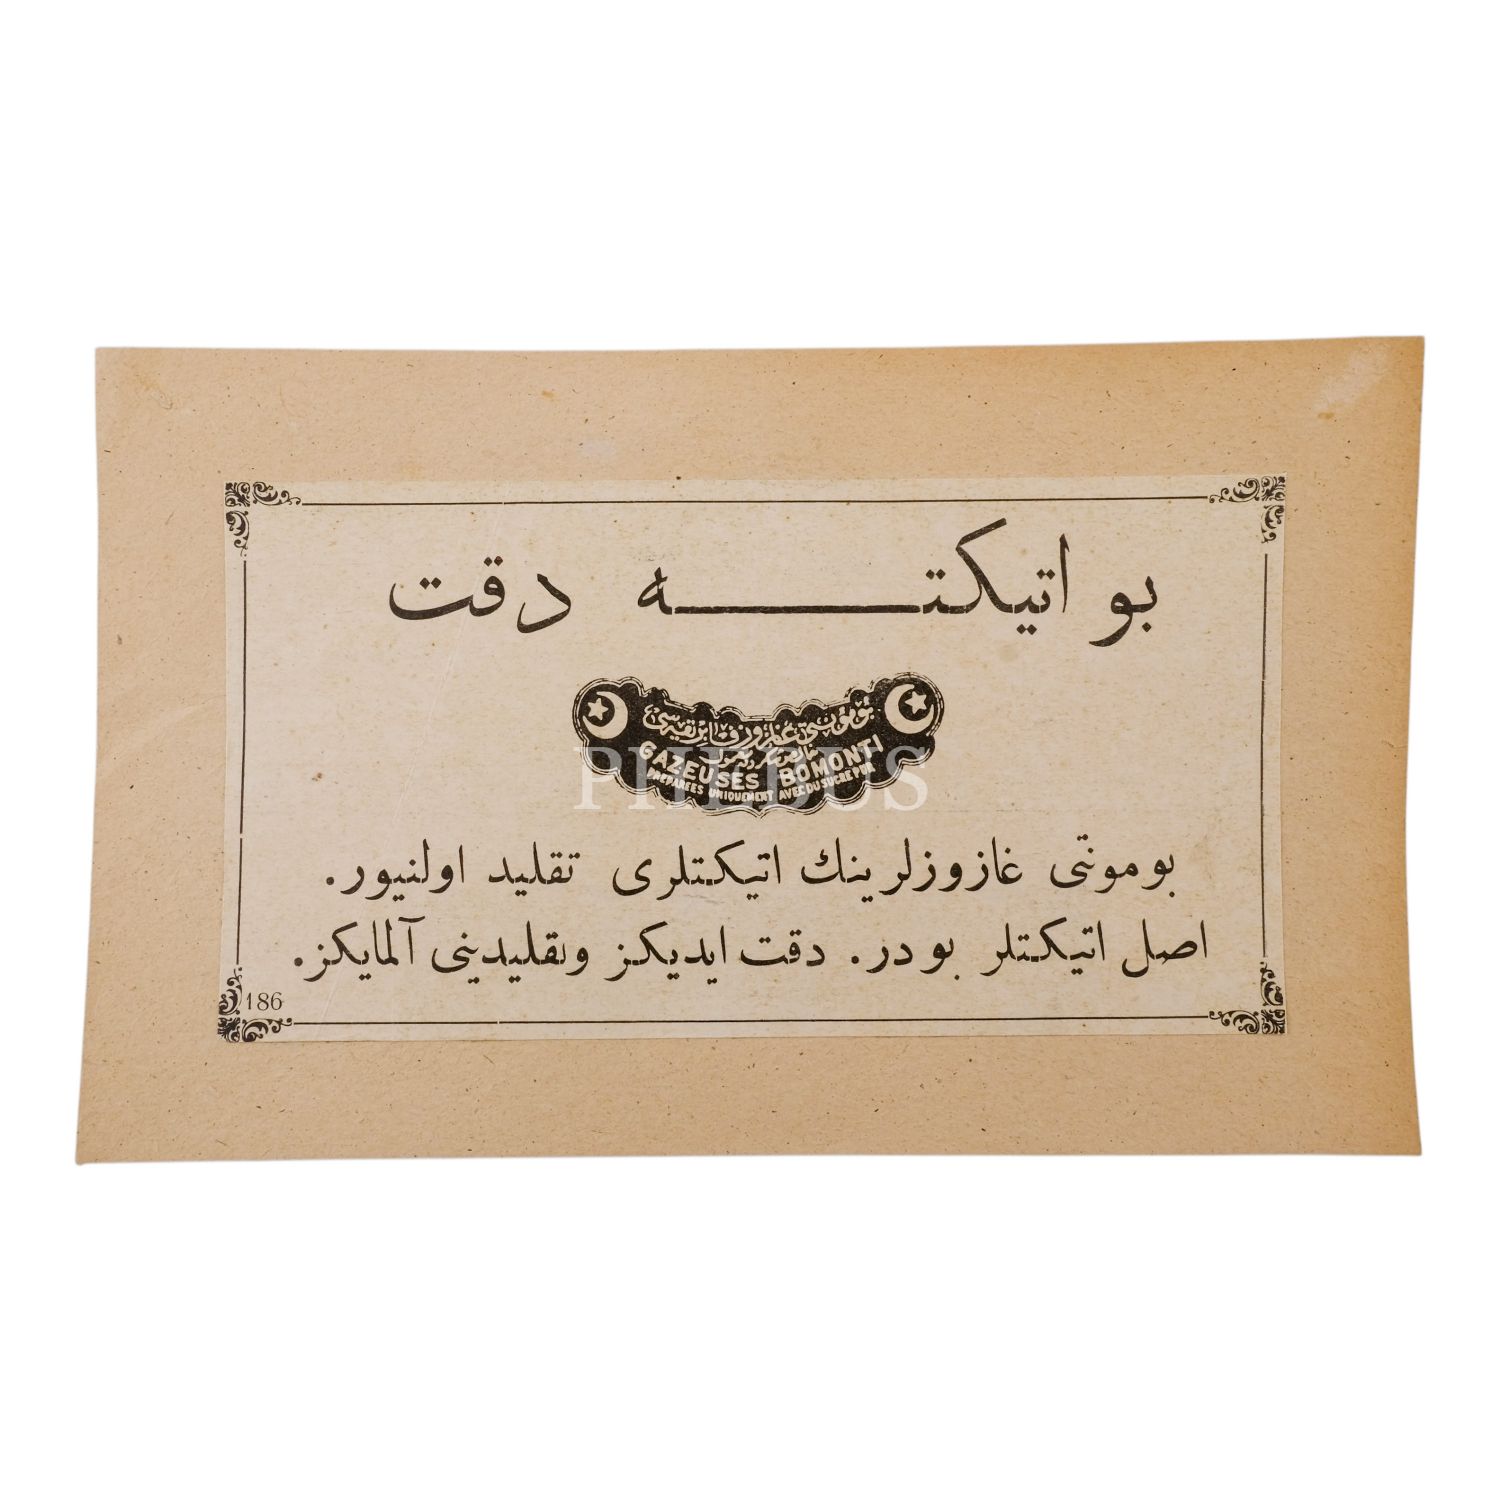 بو اتيكتـــه دقت
بومونتى غازوز فابريقه سى
GAZEUSES BOMONTI
PREPARÉES UNIQUEMENT AVEC DU SUCRE PUR
PHEBUS
بومونتى غازوزلرينك اتيكتلرى تقليد اولنيور.
اصل اتيكتلر بودر. دقت ايديكز وتقليدينى آلمايكز.
186